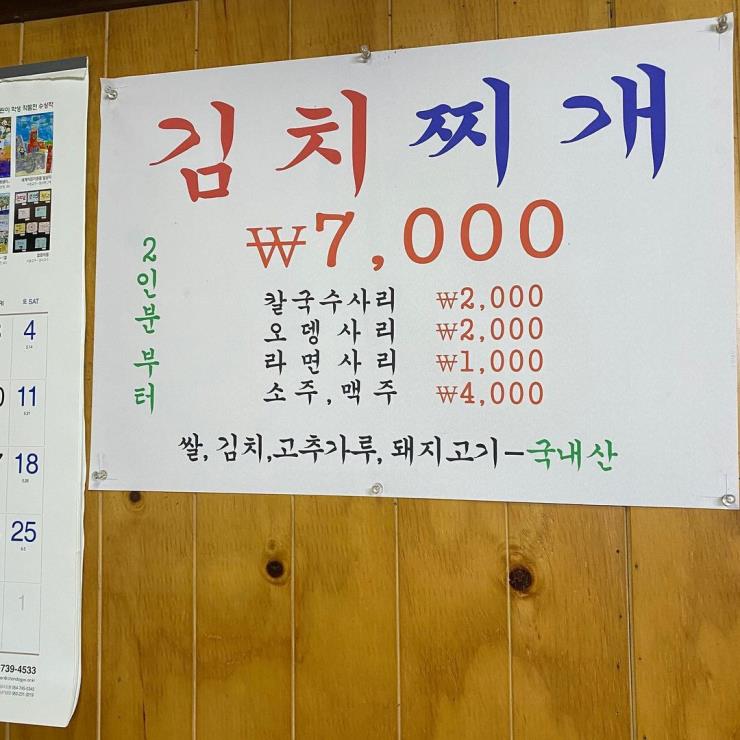 김치찌개
₩7,000
2인분 부터
칼국수사리 ₩2,000
오뎅사리 ₩2,000
라면사리 ₩1,000
소주,맥주 ₩4,000
쌀, 김치,고추가루, 돼지고기-국내산
토 SAT
4
11
18
25
1
739-4533